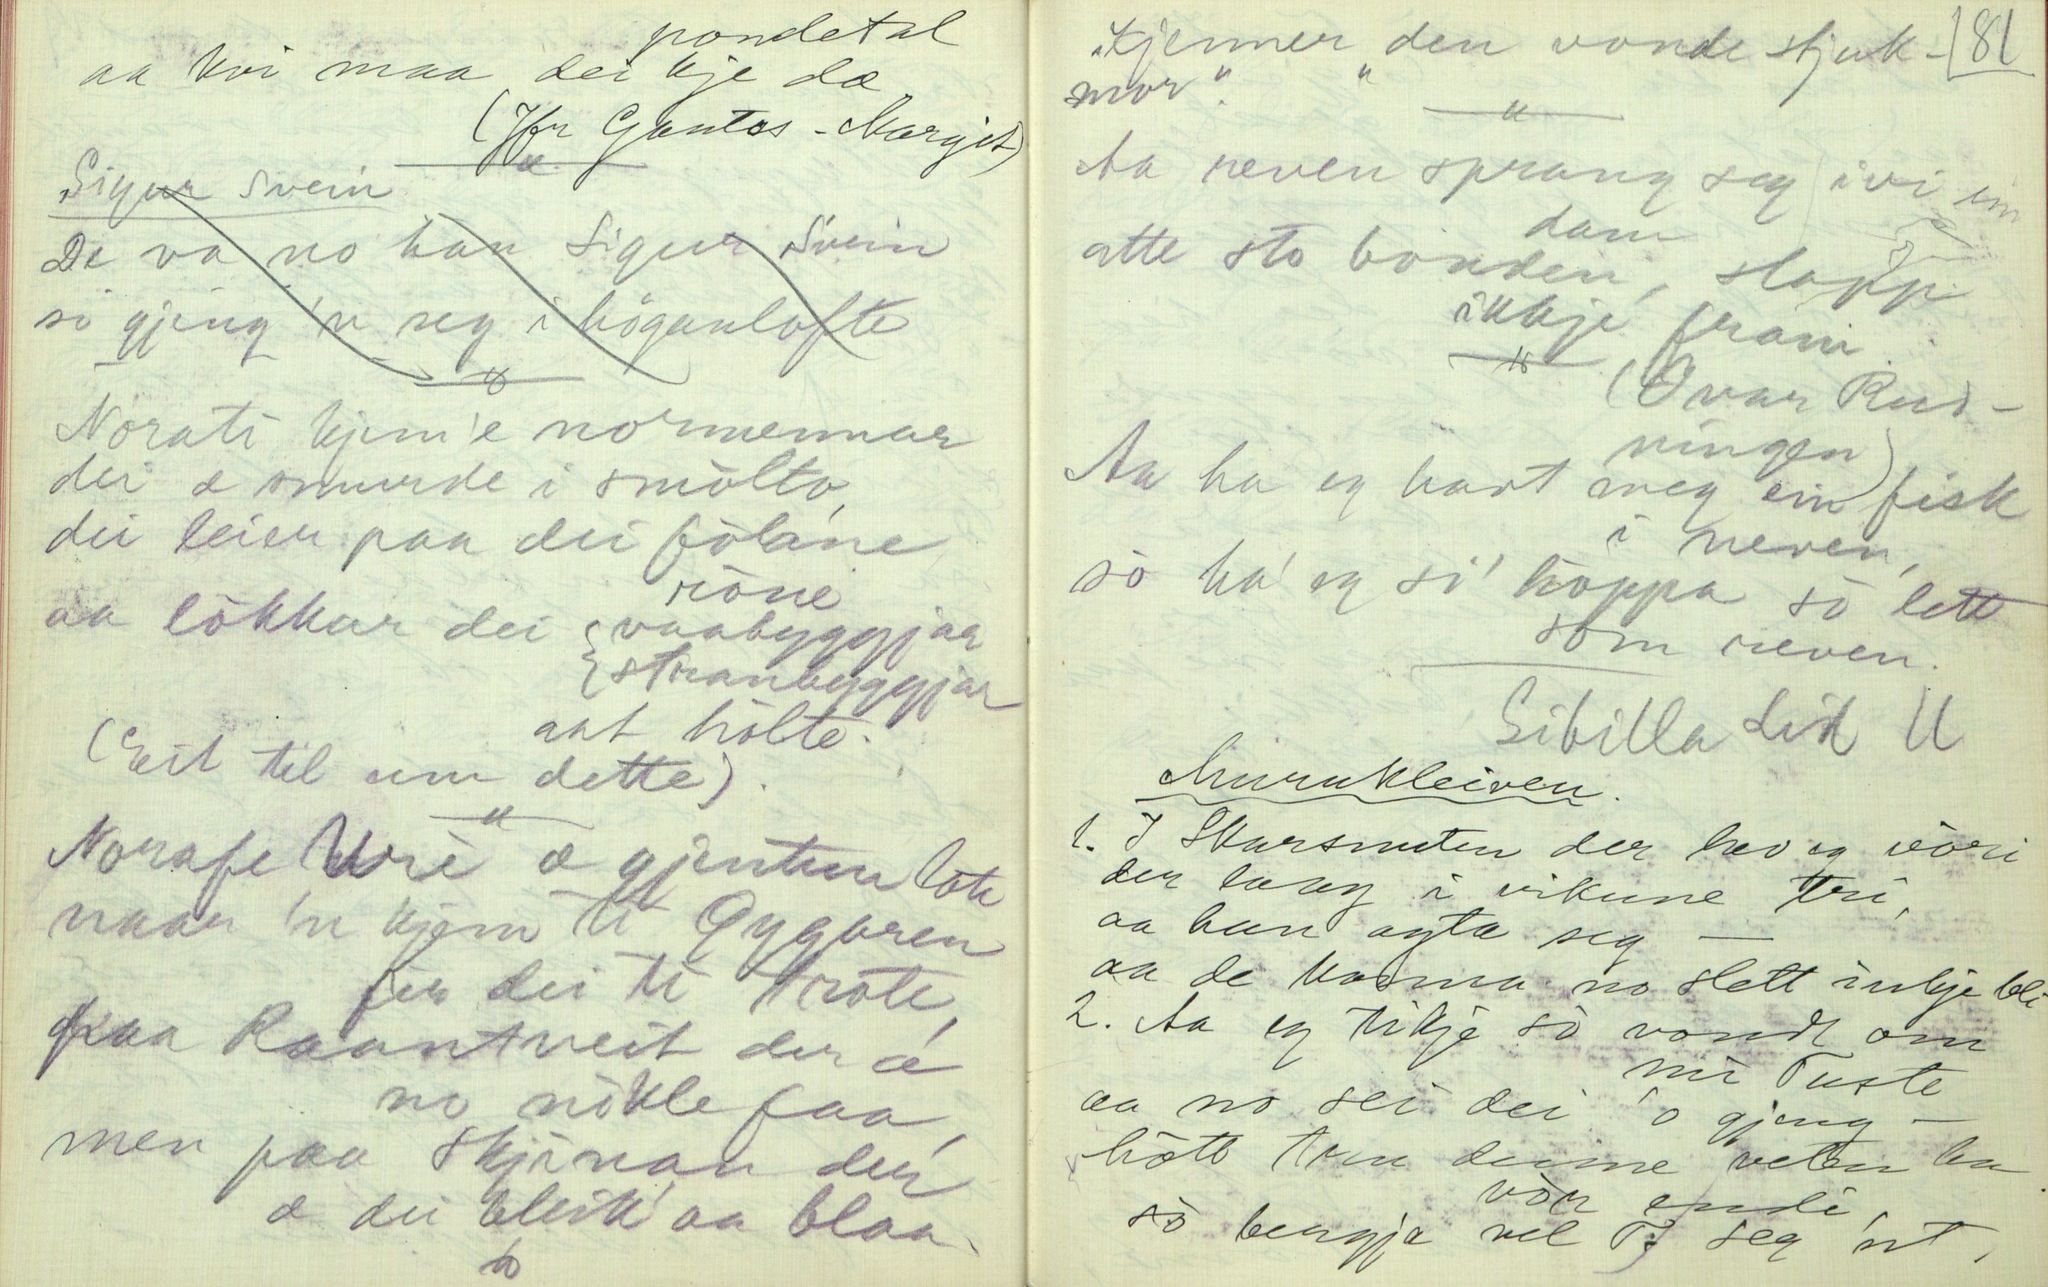 pondetal
aa kvi maa dei kje dæ
(Jfr Gantas-Margit)
Sigur Svein
De va no han Sigur Svein
so gjeng 'n seg i höganlofte
Norati kjem'e normennar
dei æ smurde i smölto,
dei leier paa dei folane
röne
aa lökkar dei { vaabyggjar
{ stranbyggjar
aat hölte.
(Eit til um dette).
Norafe Uvri æ gjentun
naar 'n kjem ti Gygaren
fer dei ti trote,
paa Raantveit der æ
no nökle faa,
men paa Skjinan der
æ dei bleik' aa blaa.
"kjenner "den vonde stjuk- 181
mor".
Aa reven sprang seg ivi ein
dam
atte sto bonden, slapp
ikkje fram.
(Ovar Rud-
ningen)
Aa ha eg havt meg ein fisk
i neven,
so ha' eg so' höppa so lett
som reven.
Sibilla Lid
1. I Skarsnuten der hev eg vöri
der laag i vikune tri,
aa han agta seg —
aa de kasma no slett inkje bli
2. Aa eg tikje so vondt om
Tuste
aa no sei dei 'o gjeng —
hött tru denne veten ha
vör endi,
so bergja vel T. seg 'ut.